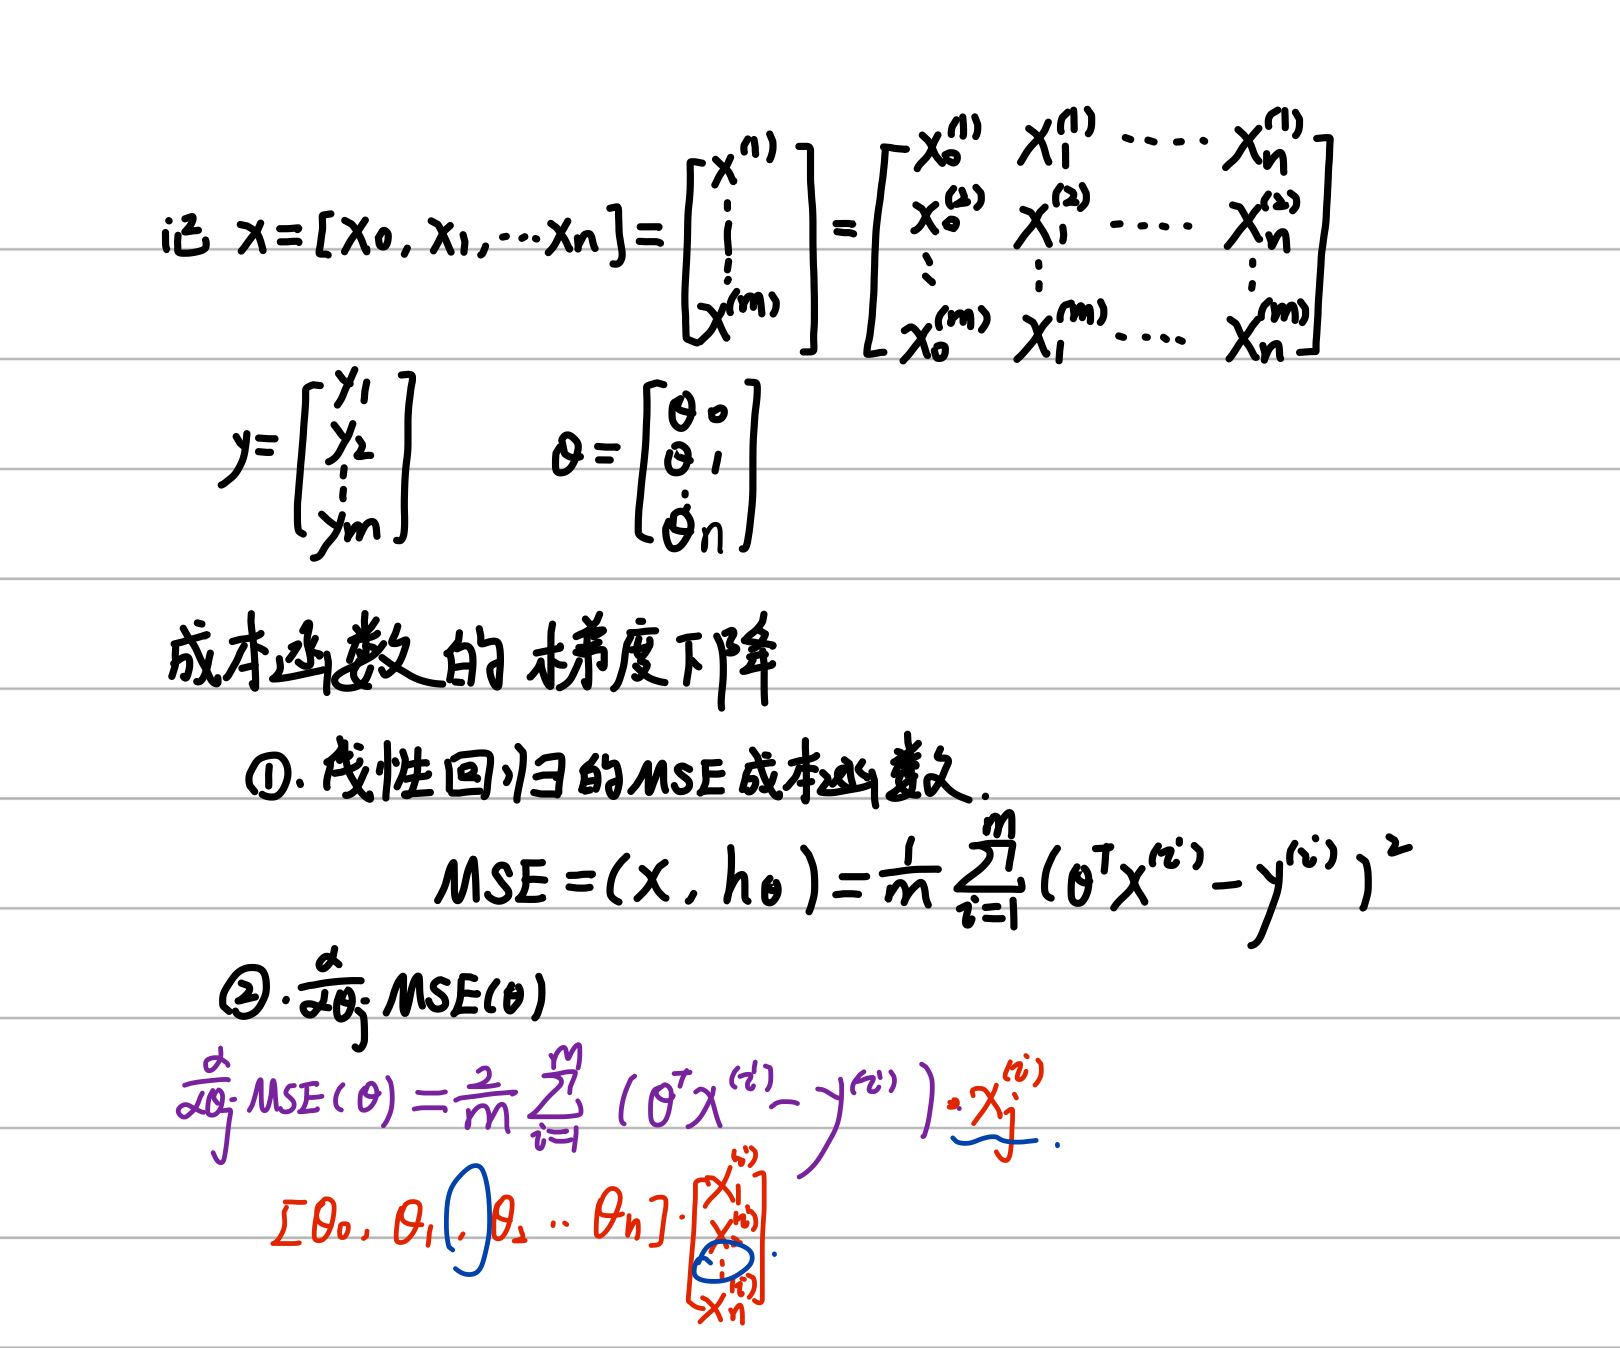 记 X = [X₀, X₁, ⋯ Xₙ] = [x⁽¹⁾ ⋮ x⁽ᵐ⁾] = [x₀⁽¹⁾ x₁⁽¹⁾ ⋯⋯ xₙ⁽¹⁾
x₀⁽²⁾ x₁⁽²⁾ ⋯⋯ xₙ⁽²⁾
⋮ ⋮ ⋮
x₀⁽ᵐ⁾ x₁⁽ᵐ⁾ ⋯⋯ xₙ⁽ᵐ⁾]
y = [y₁ y₂ ⋮ yₘ] θ = [θ₀ θ₁ ⋮ θₙ]
成本函数的梯度下降
①. 线性回归的MSE成本函数.
MSE = (X, h_θ) = 1/m Σ_{i=1}^{m} (θᵀx⁽ⁱ⁾ − y⁽ⁱ⁾)²
②. α/αθⱼ MSE(θ)
α/αθⱼ MSE(θ) = 2/m Σ_{i=1}^{m} (θᵀx⁽ⁱ⁾ − y⁽ⁱ⁾) · xⱼ⁽ⁱ⁾
[θ₀, θ₁, ⋯ θₙ] · [x₁⁽ⁱ⁾ ⋮ xₙ⁽ⁱ⁾]